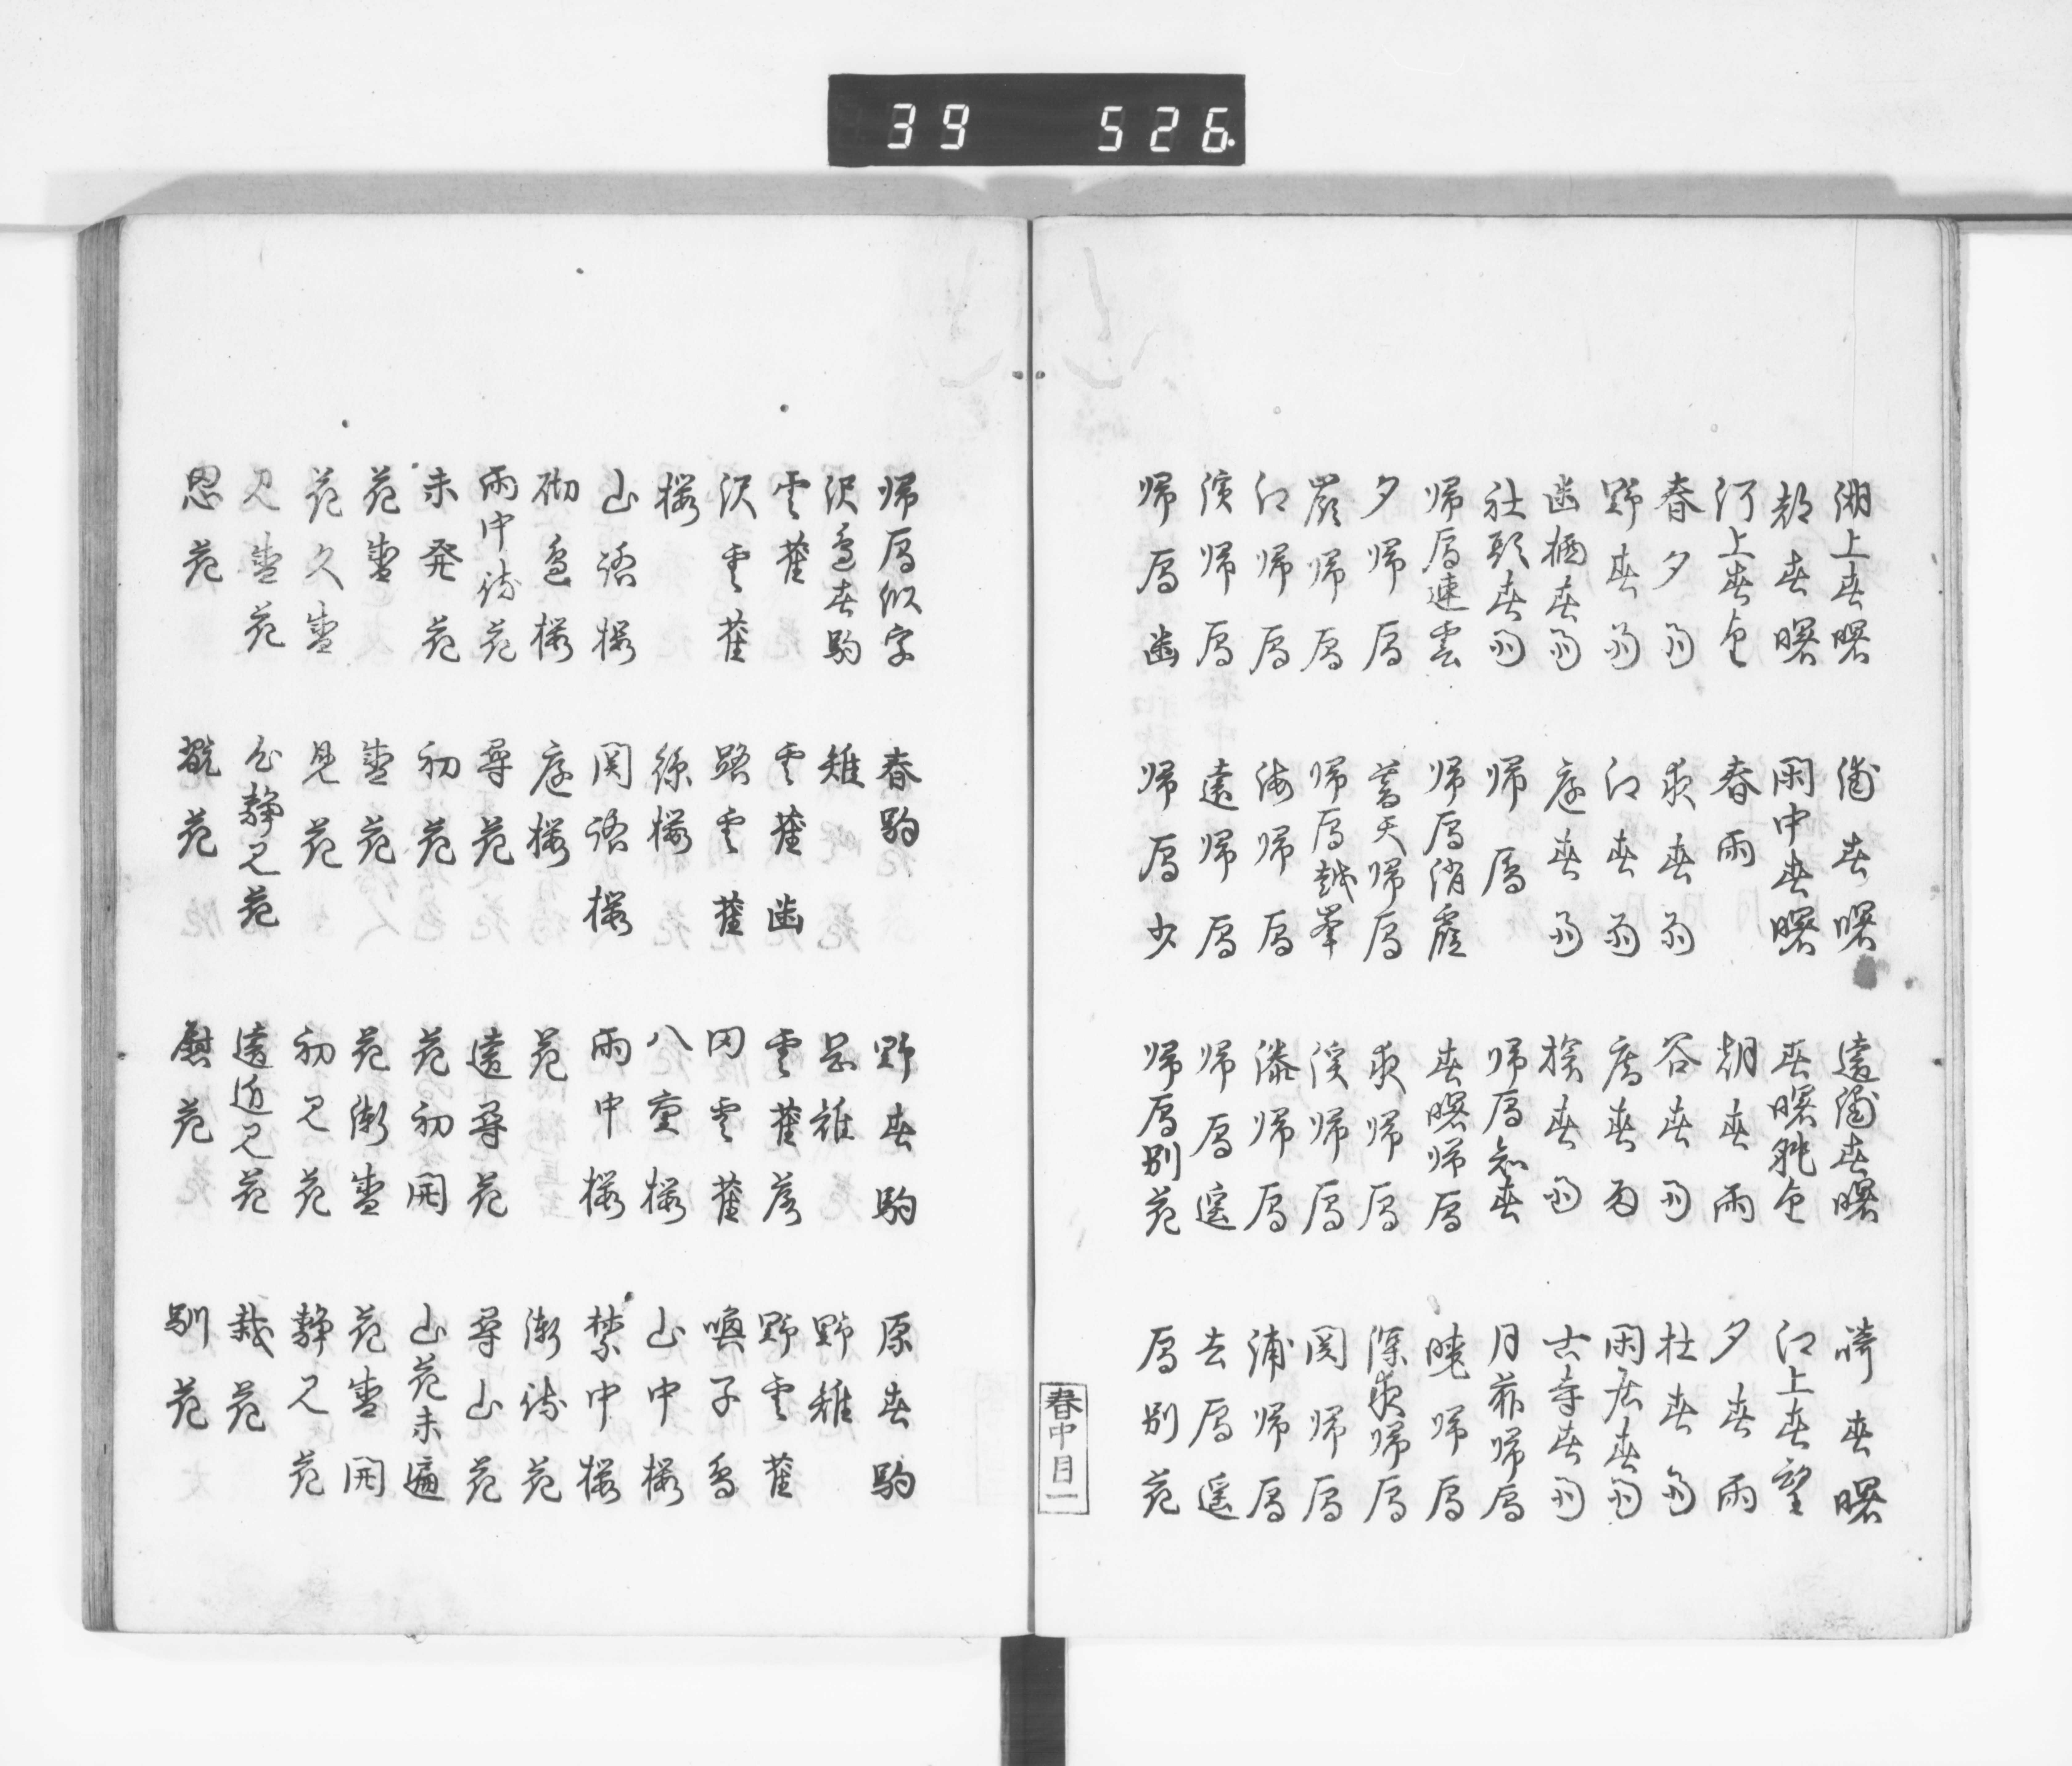 39 526
湖上春曙 浦春曙 遠浦春曙 湊春曙
都春曙 閑中春曙 春曙眺望 江上春望
河上春望 春雨 朝春雨 夕春雨
春夕雨 夜春雨 谷春雨 杜春雨
野春雨 江春雨 窓春雨 閑居春雨
幽栖春雨 庭春雨 旅春雨 古寺春雨
社頭春雨 帰雁 帰雁知春 月前帰雁
帰雁連雲 帰雁消霞 春曙帰雁 暁帰雁
夕帰雁 暮天帰雁 夜帰雁 深夜帰雁
嶺帰雁 帰雁越峯 渓帰雁 関帰雁
江帰雁 海帰雁 湊帰雁 浦帰雁
濱帰雁 遠帰雁 帰雁遥 去雁遥
帰雁幽 帰雁少 帰雁別花 雁別花
春中目一
帰雁似字 春駒 野春駒 原春駒
沢辺春駒 雉 岡雉 野雉
雲雀 雲雀幽 雲雀落 野雲雀
沢雲雀 路雲雀 田雲雀 喚子鳥
桜 糸桜 八重桜 山中桜
山路桜 関路桜 雨中桜 禁中桜
砌辺桜 庭桜 花 漸待花
雨中待花 尋花 遠尋花 尋山花
未発花 初花 花初開 山花未遍
花盛 盛花 花漸盛 花盛開
花久盛 見花 初見花 静見花
見盛花 心静見花 遠近見花 栽花
思花 翫花 慰花 馴花